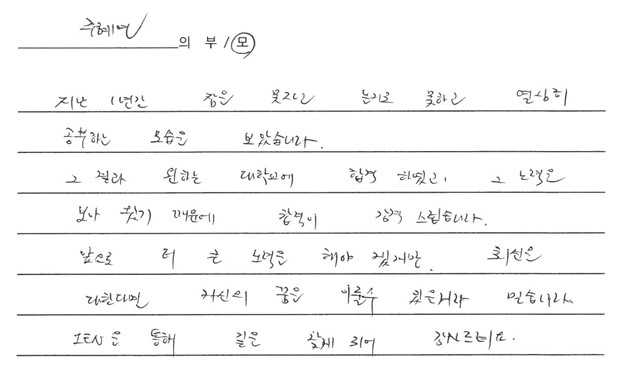 주혜연 의 부 / 모
지난 1년간 잠은 못자고 놀지도 못하고 열심히
공부하는 모습을 보았습니다.
그 결과 원하는 대학교에 합격 하였고, 그 노력을
보아 왔기 때문에 합격이 감격 스럽습니다.
앞으로 더 큰 노력을 해야 겠지만, 최선을
다한다면 자신의 꿈을 이룰수 있을거라 믿습니다.
IEN을 통해 길을 찾게 되어